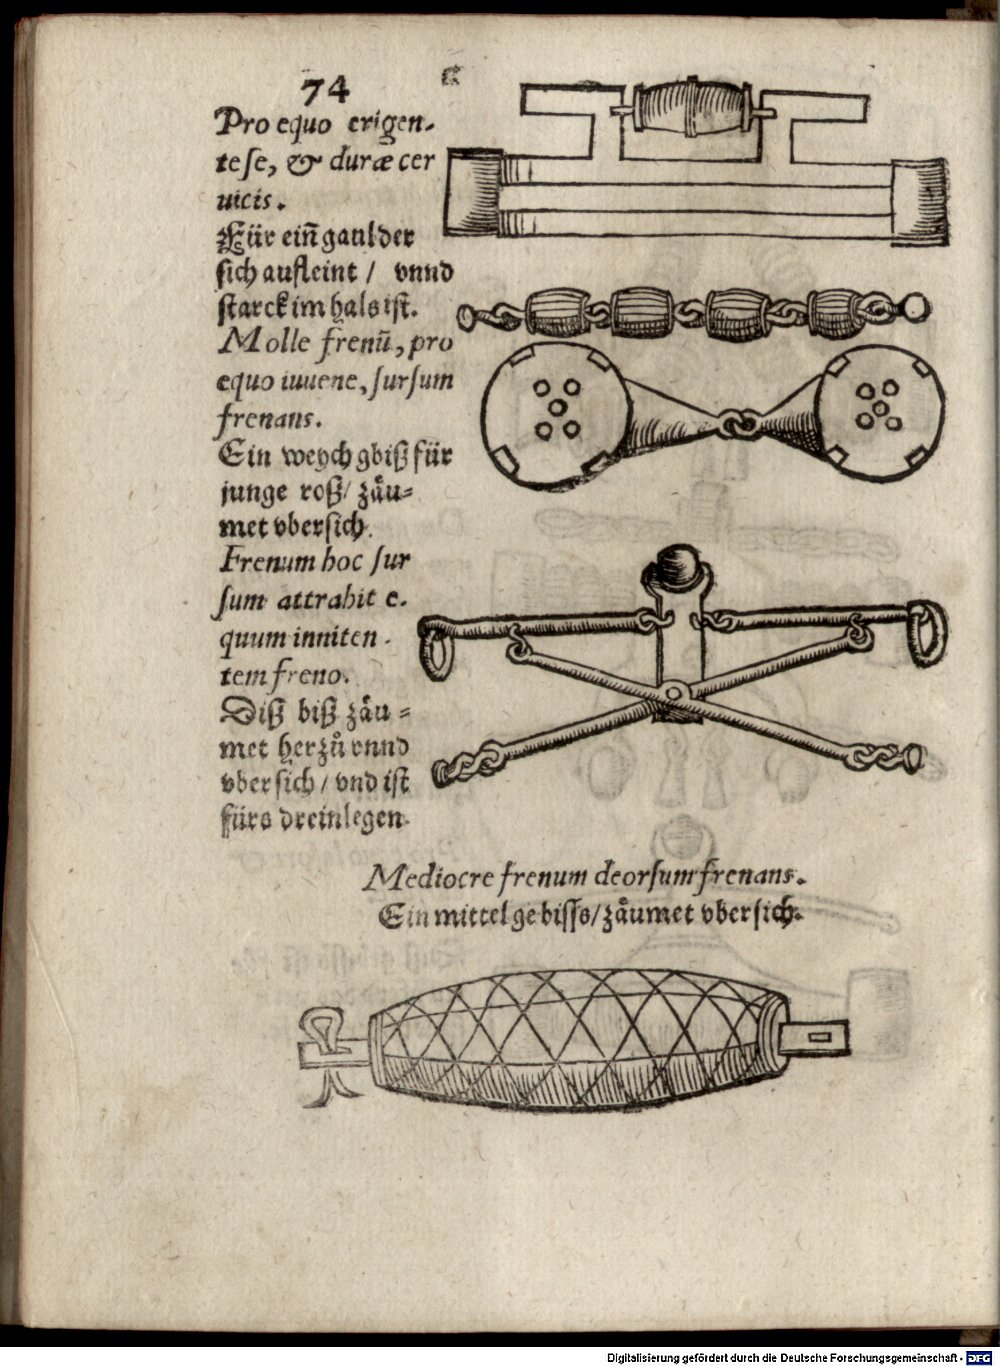 74
Pro equo erigen-
teſe, & duræ cer
uicis.
Für eiñ gaul der
ſich aufleint / vnnd
ſtarck im hals iſt.
Molle frenũ, pro
equo iuuene, ſurſum
frenans.
Ein weych gbiß für
junge roß / zåu-
met vberſich.
Frenum hoc ſur
ſum attrahit e.
quum inniten-
tem freno.
Diß biß zåu-
met herzů vnnd
vberſich / vnd iſt
fürs dreinlegen.
Mediocre frenum deorſum frenans.
Ein mittel gebiſſs / zåumet vberſich.
Digitalisierung gefördert durch die Deutsche Forschungsgemeinschaft - DFG